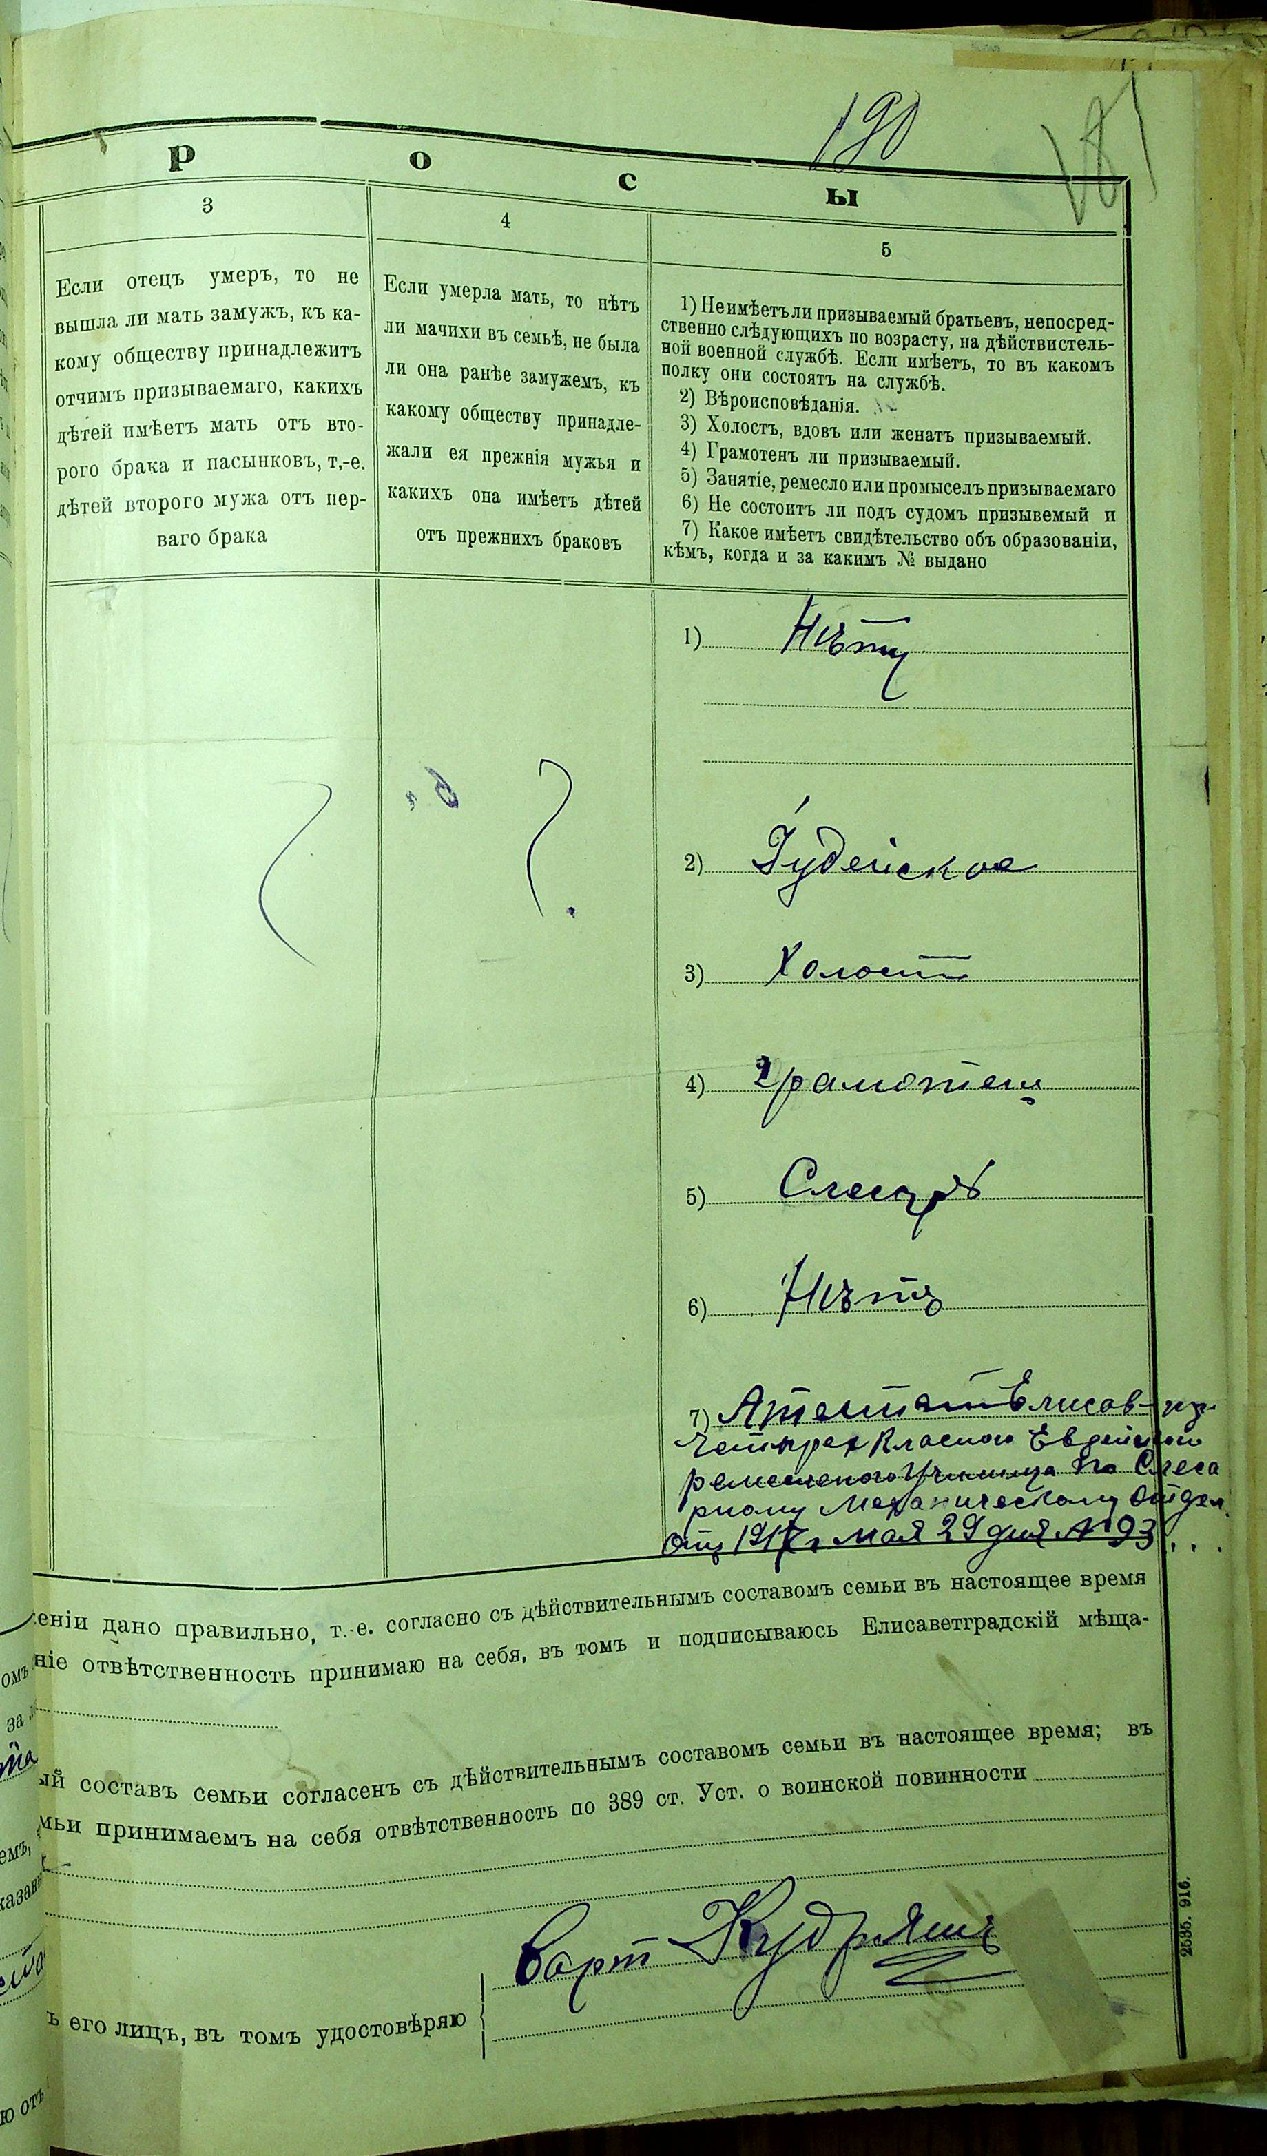 190
181
Р О С Ы
3
Если отецъ умеръ, то не
вышла ли мать замужъ, къ ка-
кому обществу принадлежитъ
отчимъ призываемаго, какихъ
дѣтей имѣетъ мать отъ вто-
рого брака и пасынковъ, т.-е.
дѣтей второго мужа отъ пер-
ваго брака
4
Если умерла мать, то нѣтъ
ли мачихи въ семьѣ, не была
ли она ранѣе замужемъ, къ
какому обществу принадле-
жали ея прежнія мужья и
какихъ она имѣетъ дѣтей
отъ прежнихъ браковъ
5
1) Неимѣетъли призываемый братьевъ, непосред-
ственно слѣдующихъ по возрасту, на дѣйствистель-
ной военной службѣ. Если имѣетъ, то въ какомъ
полку они состоятъ на службѣ.
2) Вѣроисповѣданія.
3) Холостъ, вдовъ или женатъ призываемый.
4) Грамотенъ ли призываемый.
5) Занятіе, ремесло или промыселъ призываемаго
6) Не состоитъ ли подъ судомъ призывемый и
7) Какое имѣетъ свидѣтельство объ образованіи,
кѣмъ, когда и за какимъ № выдано
1) Нѣтъ
2) Іудейское
3) Холостъ
4) Грамотенъ
5) Слесарь
6) Нѣтъ
7) Атестатъ Елисав-
Четырех Класного Еврейского
ремесленого Училища По Слеса
рному Механическому Отдел.
Отъ 1917 г Мая 29 дня № 93
еніи дано правильно, т.-е. согласно съ дѣйствительнымъ составомъ семьи въ настоящее время
ніе отвѣтственность принимаю на себя, въ томъ и подписываюсь Елисаветградскій мѣща-
ый составъ семьи согласенъ съ дѣйствительнымъ составомъ семьи въ настоящее время; въ
мьи принимаемъ на себя отвѣтственность по 389 ст. Уст. о воинской повинности
Кудряшъ
ъ его лицъ, въ томъ удостовѣряю
2535. 916.